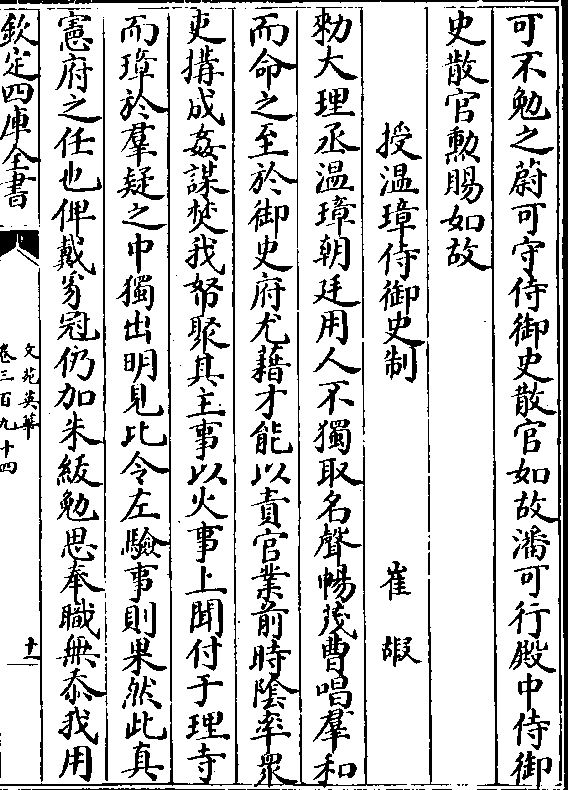 可不勉之蔚可守侍御史散官如故潘可行殿中侍御
史散官勲賜如故
授温璋侍御史制
崔嘏
勑大理丞温璋朝廷用人不獨取名聲暢茂曹唱羣和
而命之至於御史府尤藉才能以責官業前時陰率衆
吏搆成姦謀焚我帑聚其主事以火事上聞付于理寺
而璋於羣疑之中獨出明見比令左驗事則果然此真
憲府之任也俾戴豸冠仍加朱紱勉思奉職無忝我用
欽定四庫全書
文苑英華
卷三百九十四
十一